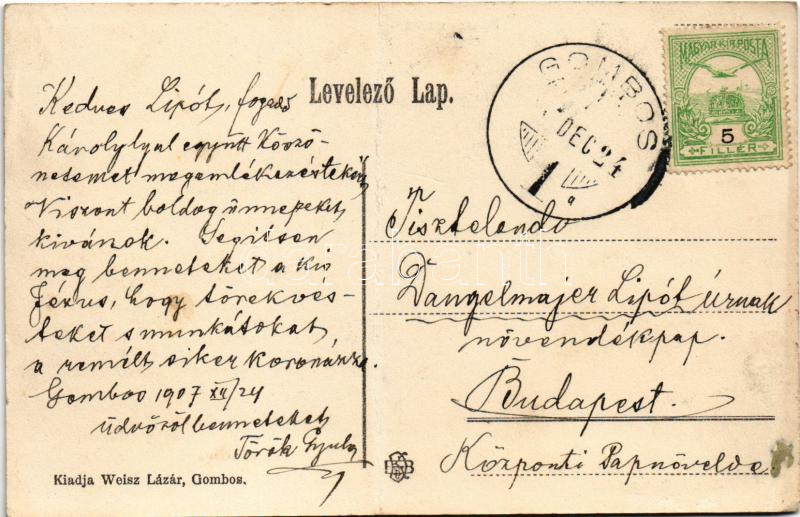 Levelező Lap.
Kedves Lipót, fogadd
Károlylyal együtt köszö-
netemet megemlékezéstekért
Viszont boldog ünnepeket
kivánok. Segitsen
meg benneteket a kis
Jézus, hogy törekvés-
teket s munkátokat
a remélt siker koronázza.
Gombos 1907 XII/24
üdvözöl benneteket
Török Gyula
Kiadja Weisz Lázár, Gombos.
GOMBOS
DEC 24
MAGYAR KIR. POSTA
5
FILLÉR
Tisztelendő
Dangelmajer Lipót úrnak
növendékpap.
Budapest.
Központi Papnövelde.